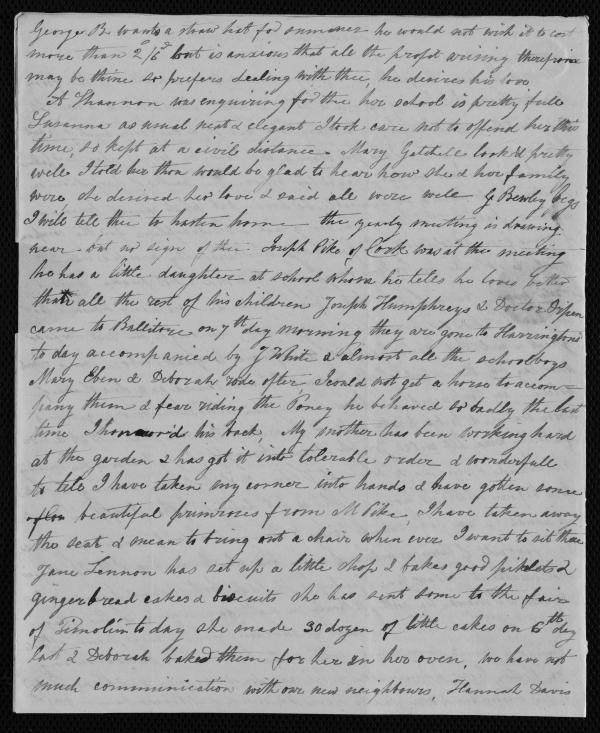 George B. wants a straw hat for summer he would not wish it to cost
more than 2s/6d but is anxious that all the profit arising therefrom
may be thine so prefers dealing with thee, he desires his love
A Shannon was enquiring for thee, her school is pretty full
Susanna as usual neat & elegant I took care not to offend her this
time, so kept at a civil distance. Mary Gatchell look'd pretty
well I told her thou would be glad to hear how she & her family
were she desired her love & said all were well G Bewley begs
I will tell thee to hasten home the yearly meeting is drawing
near but no sign of thee Joseph Pike of Cork was at the meeting
he has a little daughter at school whom he tells he loves better
than all the rest of his children Joseph Humphreys & Doctor
came to Ballitore on 7th day morning they are gone to Harrington's
to day accompanied by J White & almost all the schoolboys
Mary Eben & Deborah rode after I could not get a horse to accom=
pany them & fear riding the Poney he behaved so badly the last
time I honour'd his back, My mother has been working hard
at the garden & has got it into tolerable order & wonderfull
to tell I have taken my corner into hands & have gotten some
beautiful primroses from M Pike, I have taken away
the seat & mean to bring out a chair when ever I want to sit there
Jane Lennon has set up a little shop & bakes good pikelets &
gingerbread cakes & biscuits she has sent some to the fair
of Timolin to day she made 30 dozen of little cakes on 6th day
last & Deborah baked them for her in her oven, we have not
much communication with our new neighbours, Hannah Davis